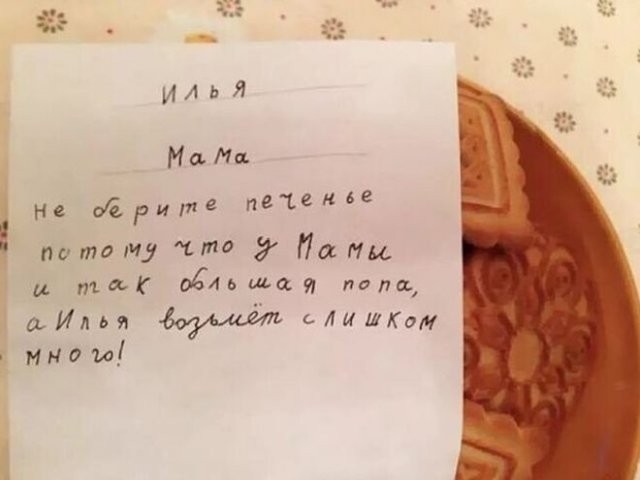 Илья
Мама
Не берите печенье
потому что у Мамы
и так большая попа,
а Илья возьмёт слишком
много!